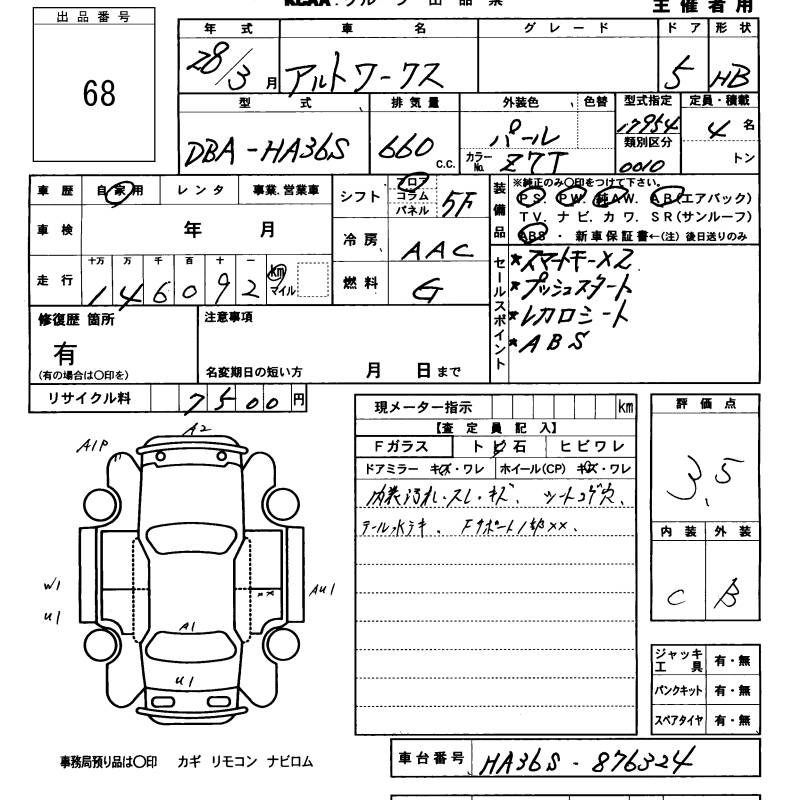 主催者用
出品番号
68
年式 車名 グレード ドア 形状
28/3月 アルトワークス 5 HB
型式 排気量 外装色 色替 型式指定 定員・積載
DBA-HA36S 660 C.C. パール 17954 4名
カラーNo. Z7T 類別区分 0010 トン
車歴 自家用 レンタ 事業.営業車
シフト フロア コラム パネル 5F
装備品 ※純正のみ〇印をつけて下さい。
PS. PW. 純AW. AB(エアバック)
TV. ナビ. カワ. SR(サンルーフ)
ABS ・ 新車保証書←(注) 後日送りのみ
車検 年 月
冷房 AAC
走行 十万 万 千 百 十 一 km マイル
146092
燃料 G
セールスポイント
*スマートキー×2
*プッシュスタート
*レカロシート
*ABS
修復歴 箇所
有
(有の場合は〇印を)
注意事項
名変期日の短い方 月 日まで
リサイクル料 7500円
現メーター指示 km
【査定員記入】
Fガラス トビ石 ヒビワレ
ドアミラー キズ・ワレ ホイール(CP) キズ・ワレ
内装汚れ・スレ・キズ、 シートコゲ穴、
テール水テキ、 Fサポート1部××、
評価点
3.5
内装 外装
C B
A2
A1P
W1
U1
AU1
××
A1
U1
ジャッキ工具 有・無
パンクキット 有・無
スペアタイヤ 有・無
事務局預り品は〇印 カギ リモコン ナビロム
車台番号 HA36S-876324